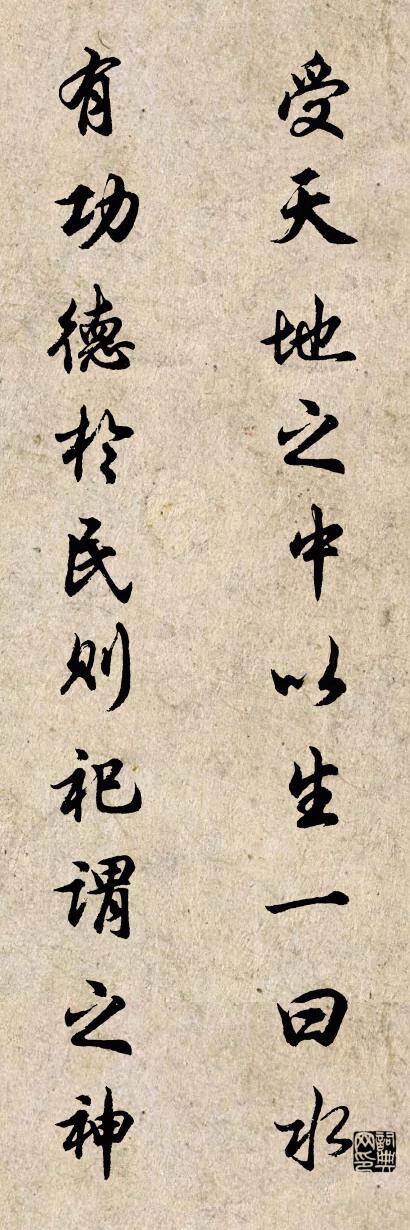 受天地之中以生一曰水
有功德於民則祀謂之神
詞典
网印